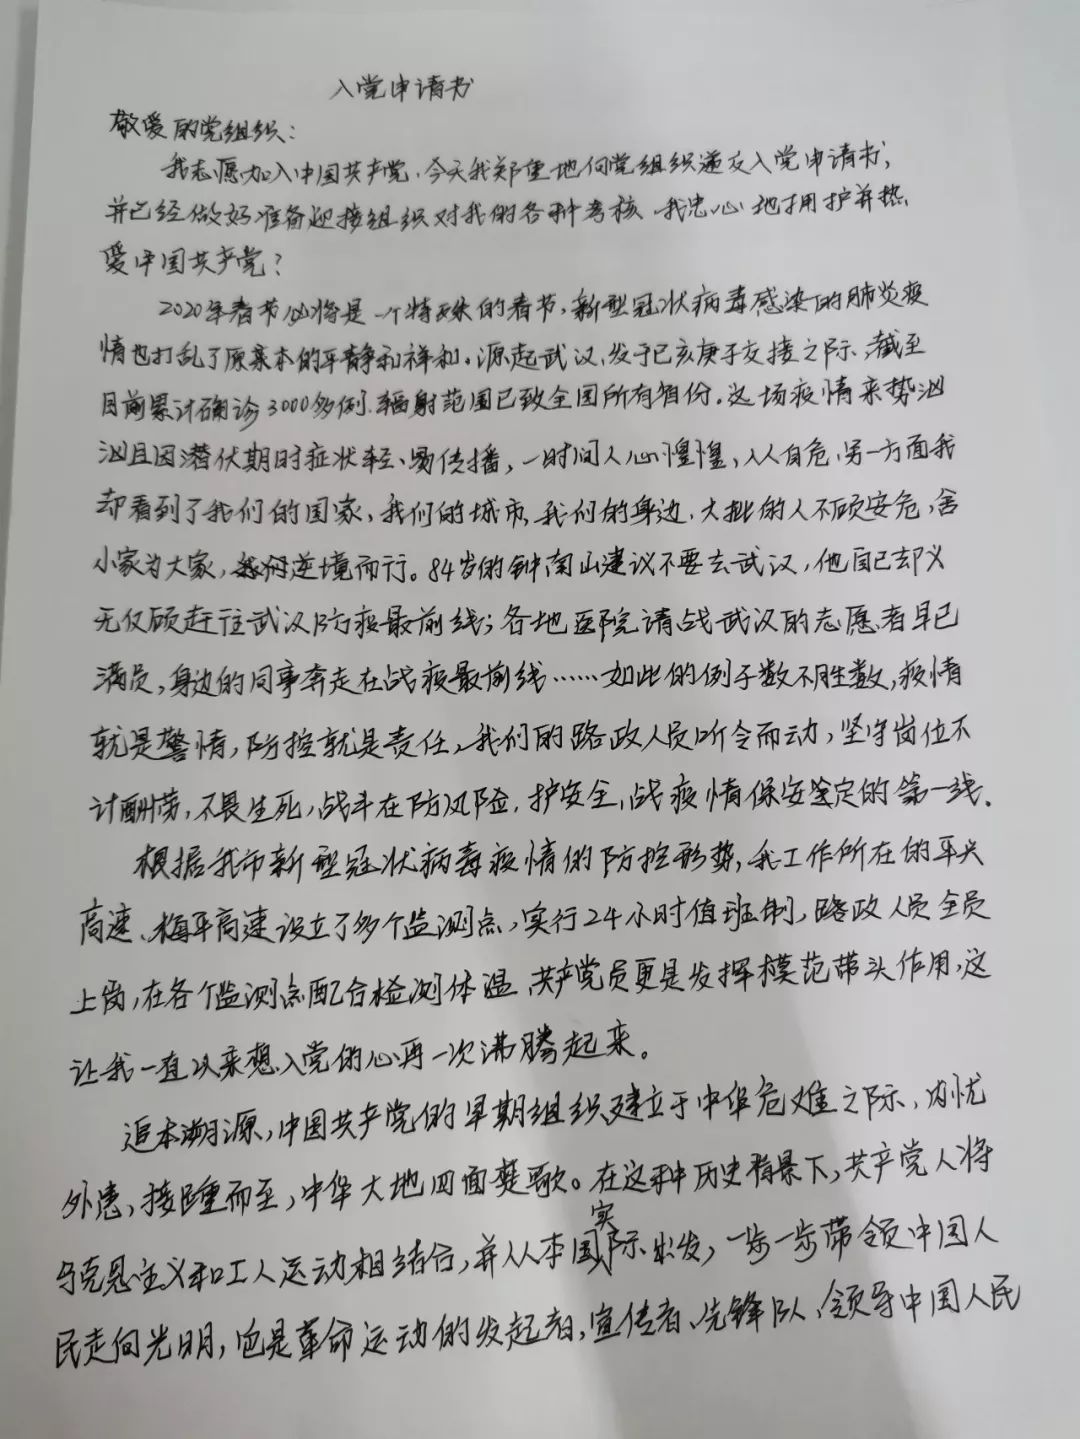 入党申请书
敬爱的党组织：
我志愿加入中国共产党，今天我郑重地向党组织递交入党申请书，
并已经做好准备迎接组织对我的各种考核，我忠心地拥护并热
爱中国共产党？
2020年春节必将是一个特殊的春节，新型冠状病毒感染的肺炎疫
情也打乱了原来本的平静和祥和。源起武汉，发于己亥庚子交接之际，截至
目前累计确诊3000多例，辐射范围已致全国所有省份。这场疫情来势汹
汹且因潜伏期时症状轻、易传播，一时间人心惶惶，人人自危，另一方面我
却看到了我们的国家，我们的城市，我们的身边，大批的人不顾安危，舍
小家为大家，逆境而行。84岁的钟南山建议不要去武汉，他自己却义
无仅顾赶往武汉防疫最前线；各地医院请战武汉的志愿者早已
满员，身边的同事奔走在战疫最前线……如此的例子数不胜数，疫情
就是警情，防控就是责任，我们的路政人员听令而动，坚守岗位不
计酬劳，不畏生死，战斗在防风险，护安全，战疫情保安定的第一线。
根据我市新型冠状病毒疫情的防控形势，我工作所在的平兴
高速、梅平高速设立了多个监测点，实行24小时值班制，路政人员全员
上岗，在各个监测点配合检测体温，共产党员更是发挥模范带头作用，这
让我一直以来想入党的心再一次沸腾起来。
追本溯源，中国共产党的早期组织建立于中华危难之际，内忧
外患，接踵而至，中华大地四面楚歌。在这种历史背景下，共产党人将
马克思主义和工人运动相结合，并从本国实际出发，一步一步带领中国人
民走向光明，也是革命运动的发起者，宣传者、先锋队、领导中国人民